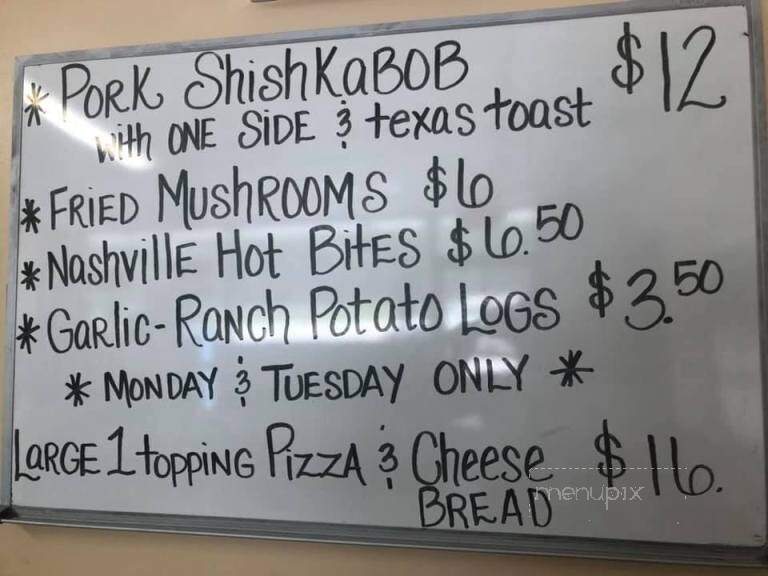 * PORK ShishKaBOB $12
with ONE SIDE & texas toast
* FRIED MUSHROOMS $6
* NashvillE Hot BitES $6.50
* GaRlic-RANCh Potato LOGS $3.50
* MONDAY & TUESDAY ONLY *
LaRGE 1 toPPING PizzA & Cheese $16.
BREAD
menupix